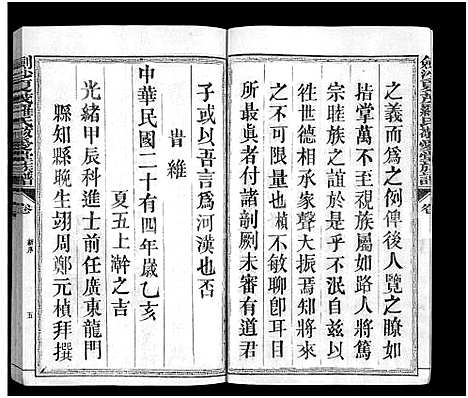 之義而爲之例俾後人覽之瞭如
指掌萬不至視族屬如路人將篤
宗睦族之誼於是乎不泯自茲以
往世德相承家聲大振焉知將來
之不可限量也楨不敏聊卽耳目
所最眞者付諸剞劂未審有道君
子或以吾言爲河漢也否
旹維
中華民國二十有四年歲乙亥
夏五上澣之吉
光緒甲辰科進士前任廣東龍門
縣知縣晚生翊周鄭元楨拜撰
卷
五